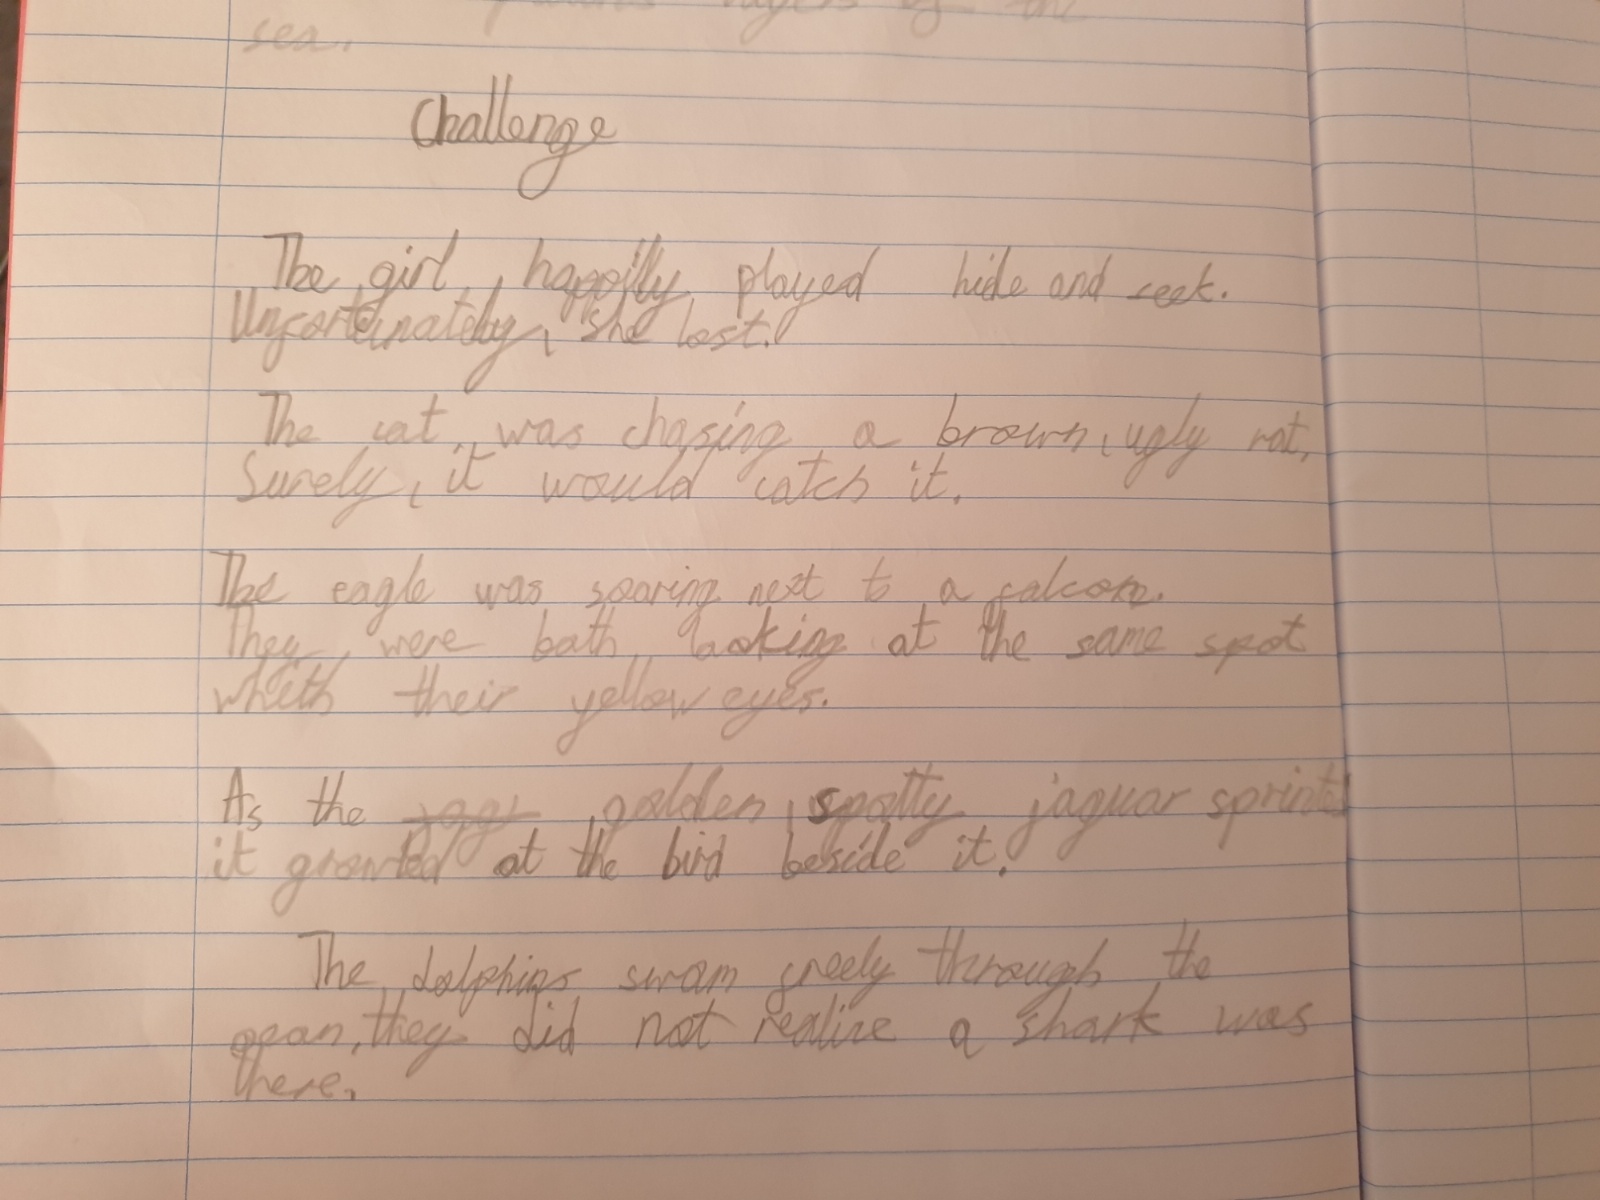 layers of the
sea.
Challenge
The girl, happily, played hide and seek.
Unfortunately, she lost.
The cat, was chasing a brown, ugly rat,
Surely, it would catch it.
The eagle was soaring next to a falcon.
They were both looking at the same spot
whith their yellow eyes.
As the golden, spotty jaguar sprinted
it growled at the bird beside it.
The dolphins swam freely through the
opean, they did not realize a shark was
there.